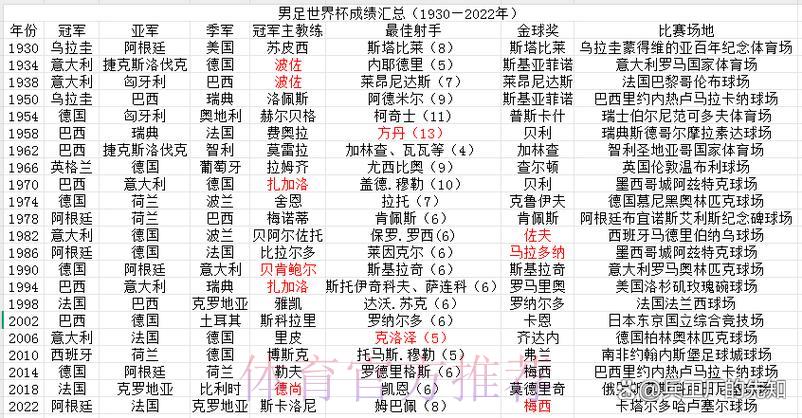 男足世界杯成绩汇总（1930－2022年）
年份 冠军 亚军 季军 冠军主教练 最佳射手 金球奖 比赛场地
1930 乌拉圭 阿根廷 美国 苏皮西 斯塔比莱（8） 斯塔比莱 乌拉圭蒙得维的亚百年纪念体育场
1934 意大利 捷克斯洛伐克 德国 波佐 内耶德里（5） 斯基亚菲诺 意大利罗马国家体育场
1938 意大利 匈牙利 巴西 波佐 莱昂尼达斯（7） 莱昂尼达斯 法国巴黎哥伦布球场
1950 乌拉圭 巴西 瑞典 洛佩斯 阿德米尔（9） 斯基亚菲诺 巴西里约内热卢马拉卡纳球场
1954 德国 匈牙利 奥地利 赫尔贝格 柯奇士（11） 普斯卡什 瑞士伯尔尼范可多夫体育场
1958 巴西 瑞典 法国 费奥拉 方丹（13） 贝利 瑞典斯德哥尔摩拉素达球场
1962 巴西 捷克斯洛伐克 智利 莫雷拉 加林查、瓦瓦等（4） 加林查 智利圣地亚哥国家体育场
1966 英格兰 德国 葡萄牙 拉姆齐 尤西比奥（9） 查尔顿 英国伦敦温布利球场
1970 巴西 意大利 德国 扎加洛 盖德.穆勒（10） 贝利 墨西哥城阿兹特克球场
1974 德国 荷兰 波兰 舍恩 拉托（7） 克鲁伊夫 德国慕尼黑奥林匹克球场
1978 阿根廷 荷兰 巴西 梅诺蒂 肯佩斯（6） 肯佩斯 阿根廷布宜诺斯艾利斯纪念碑球场
1982 意大利 德国 波兰 贝阿尔佐托 保罗.罗西(6) 佐夫 西班牙马德里伯纳乌球场
1986 阿根廷 德国 法国 比拉尔多 莱因克尔（6） 马拉多纳 墨西哥城阿兹特克球场
1990 德国 阿根廷 意大利 贝肯鲍尔 斯基拉奇（6） 斯基拉奇 意大利罗马奥林匹克球场
1994 巴西 意大利 瑞典 扎加洛 斯托伊奇科夫、萨连科（6） 罗马里奥 美国洛杉矶玫瑰碗球场
1998 法国 巴西 克罗地亚 雅凯 达沃.苏克（6） 罗纳尔多 法国法兰西球场
2002 巴西 德国 土耳其 斯科拉里 罗纳尔多（6） 卡恩 日本东京国立综合竞技场
2006 意大利 法国 德国 里皮 克洛泽（5） 齐达内 德国柏林奥林匹克球场
2010 西班牙 荷兰 德国 博斯克 托马斯.穆勒（5） 弗兰 南非约翰内斯堡足球城球场
2014 德国 阿根廷 荷兰 勒夫 罗德里格斯（6） 梅西 巴西里约内热卢马拉卡纳球场
2018 法国 克罗地亚 比利时 德尚 凯恩（6） 莫德里奇
2022 阿根廷 法国 克罗地亚 斯卡洛尼 姆巴佩（8） 梅西 卡塔尔多哈卢塞尔球场
体育官方推荐